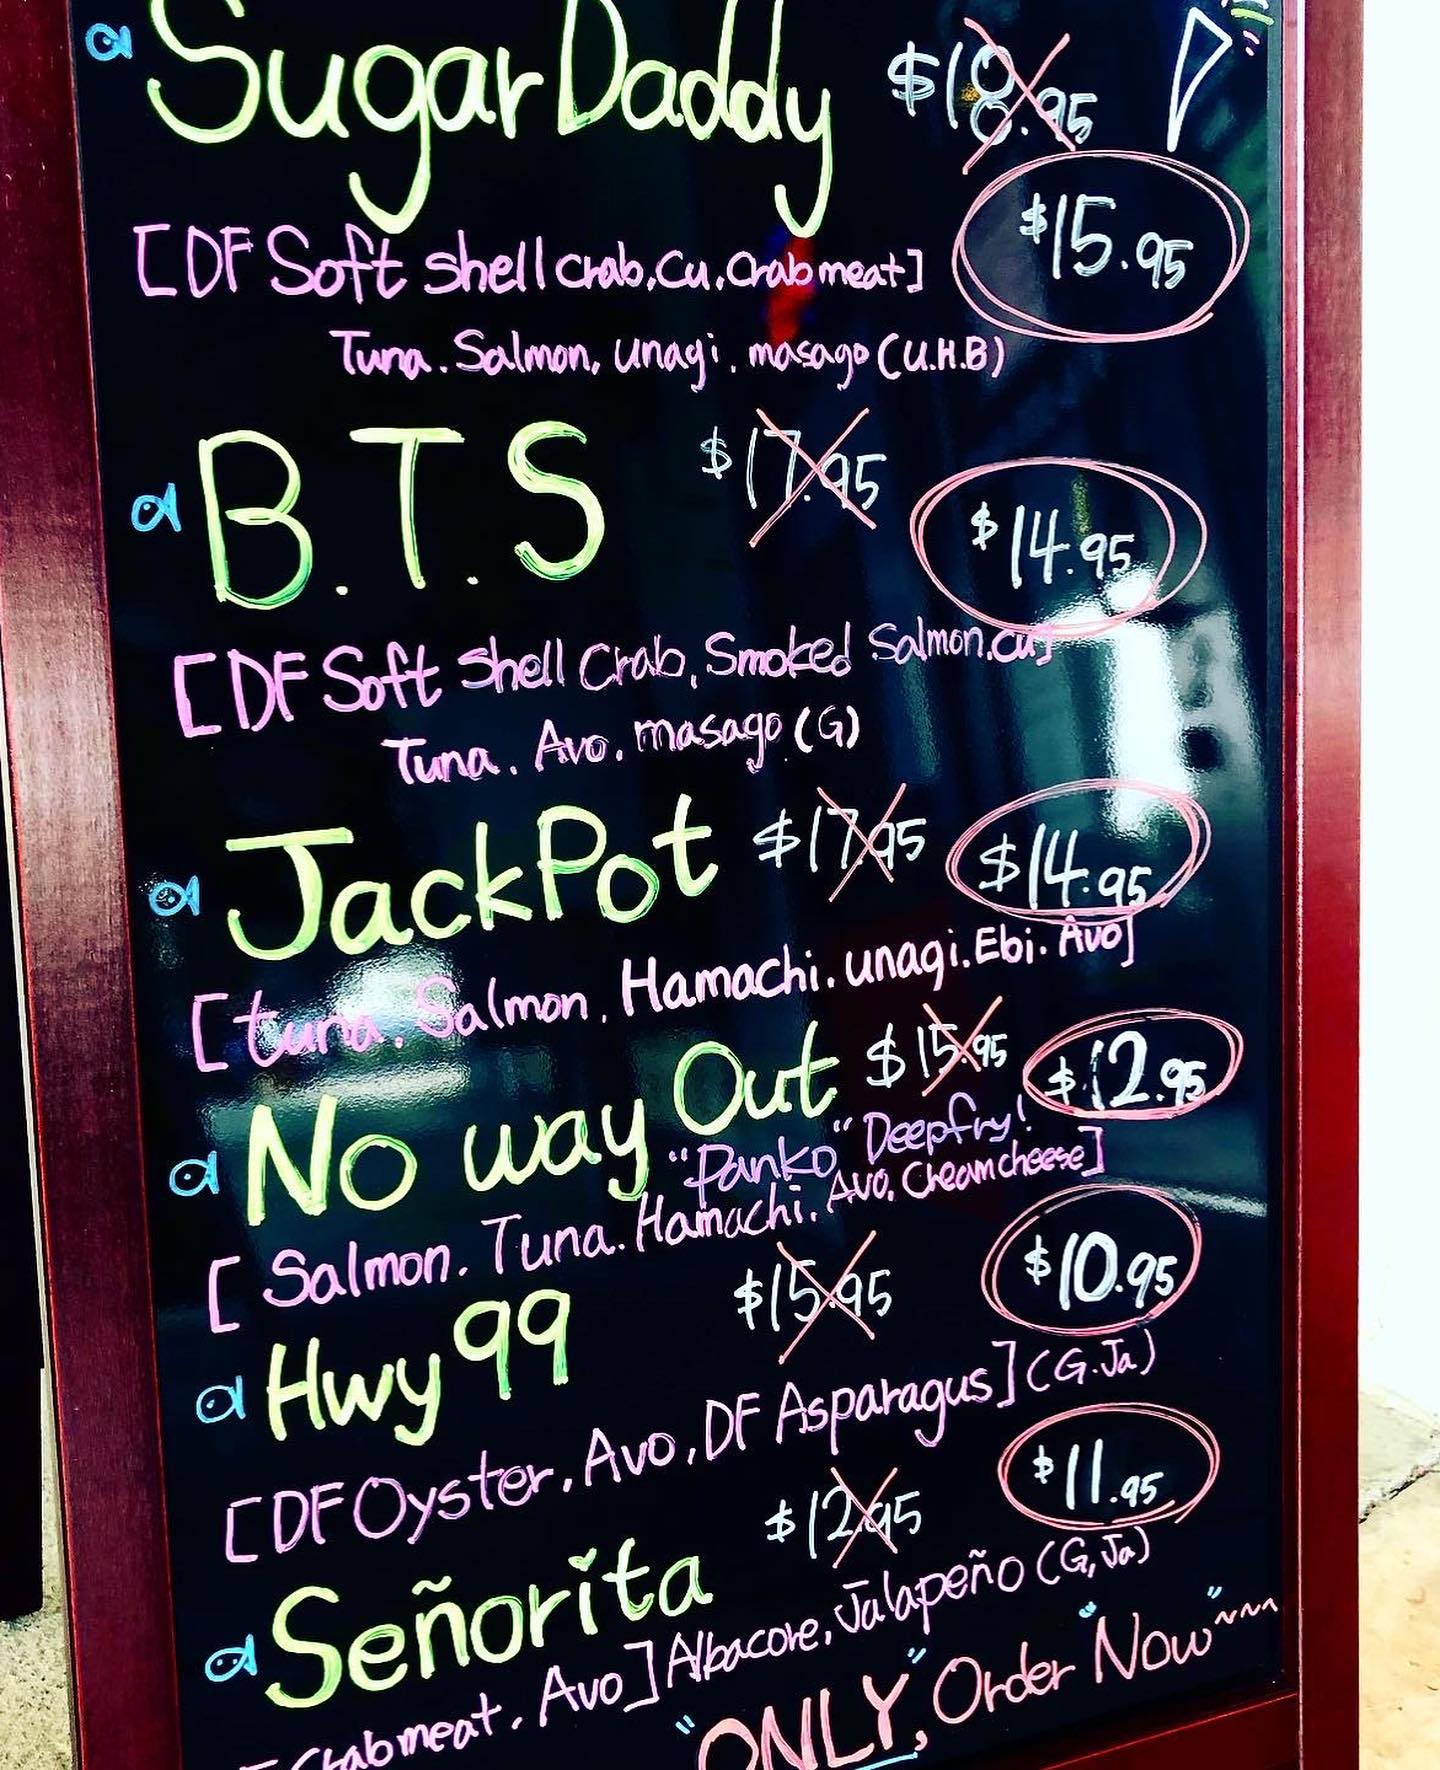 Sugar Daddy $18.95
$15.95
[DF Soft shell Crab, Cu, Crab meat]
Tuna. Salmon, unagi, masago (U.H.B)
B.T.S $17.95
$14.95
[DF Soft shell Crab, Smoked Salmon, cu]
Tuna. Avo. masago (G)
JackPot $17.95 $14.95
[tuna. Salmon, Hamachi. unagi. Ebi. Avo]
No way Out $15.95 $12.95
"Panko" Deepfry!
[Salmon. Tuna. Hamachi. Avo. Cream cheese]
Hwy 99 $15.95 $10.95
[DF Oyster, Avo, DF Asparagus] (G.Ja)
Señorita $12.95 $11.95
[Crab meat, Avo] Albacore, Jalapeño (G, Ja)
"ONLY", Order "Now"~~~